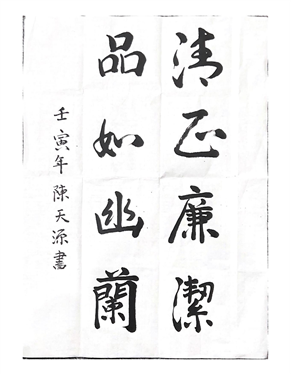 清正廉潔
品如幽蘭
壬寅年陳天源書